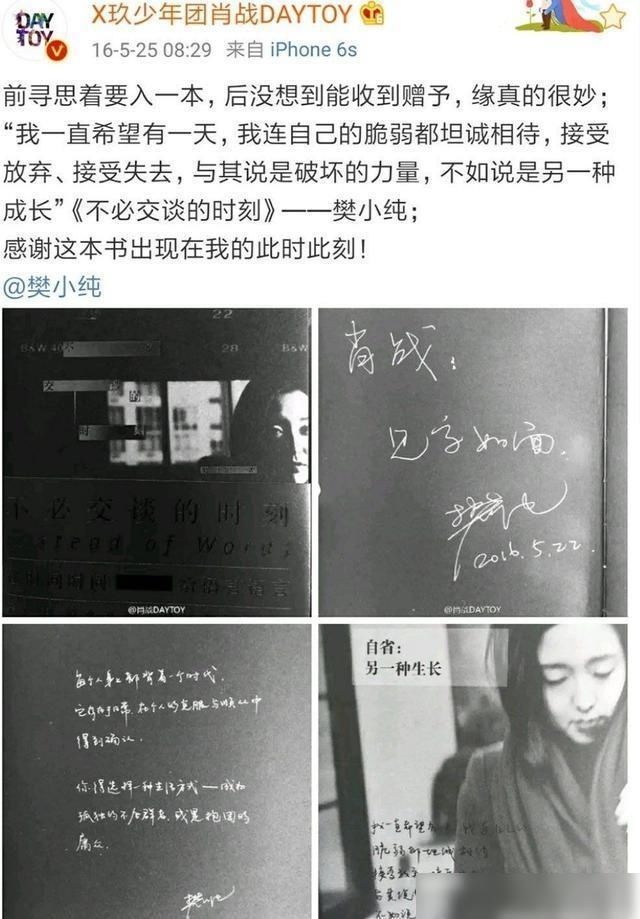 DAY
TOY
X玖少年团肖战DAYTOY
16-5-25 08:29 来自 iPhone 6s
前寻思着要入一本，后没想到能收到赠予，缘真的很妙；
“我一直希望有一天，我连自己的脆弱都坦诚相待，接受
放弃、接受失去，与其说是破坏的力量，不如说是另一种
成长”《不必交谈的时刻》——樊小纯；
感谢这本书出现在我的此时此刻！
@樊小纯
22
B&W 40
28
B&W
不
交谈的
时刻
不必交谈的时刻
Instead of Words
@肖战DAYTOY
肖战：
见字如面.
2016.5.22.
@肖战DAYTOY
每个人身上都背着一个时代.
得到确认.
你得选择一种生活方式—成为
孤独的不合群者，或是抱团的
腐众.
自省：
另一种生长